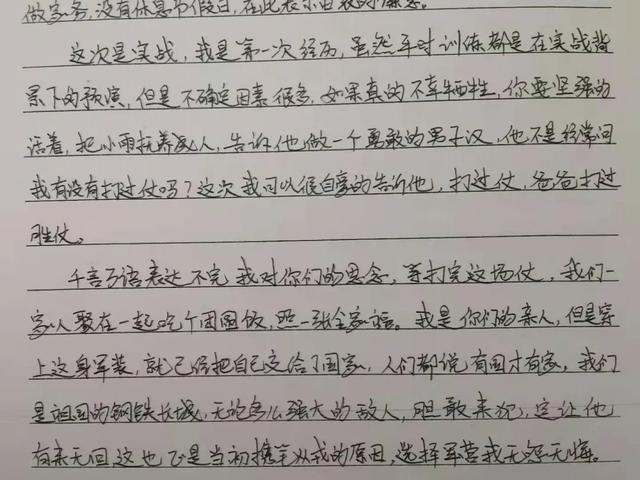 做家务,没有休息节假日,在此表示由衷的感恩。
这次是实战,我是第一次经历,虽然平时训练都是在实战背
景下的预演,但是不确定因素很多,如果真的不幸牺牲,你要坚强的
活着,把小雨抚养成人,告诉他做一个勇敢的男子汉,他不是经常问
我有没有打过仗吗?这次我可以很自豪的告诉他,打过仗,爸爸打过
胜仗。
千言万语表达不完我对你们的思念,等打完这场仗,我们一
家人聚在一起吃个团圆饭,照一张全家福。我是你们的亲人,但是穿
上这身军装,就已经把自己交给了国家,人们都说有国才有家,我们
是祖国的钢铁长城,无论多么强大的敌人,胆敢来犯,定让他
有来无回这也正是当初携笔从戎的原因,选择军营我无怨无悔。